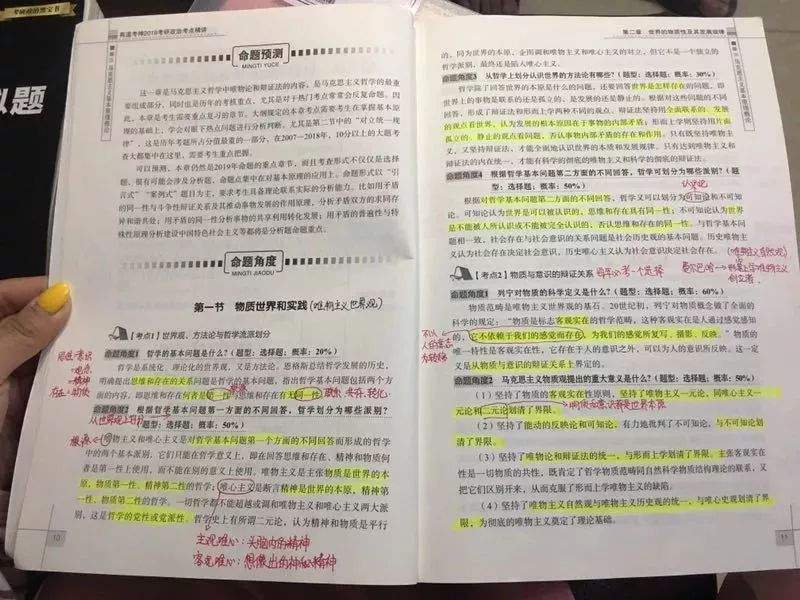 考研政治黑宝书
拟题
有道考神2019考研政治考点精讲
命题预测
MINGTI YUCE
这一章是马克思主义哲学中唯物论和辩证法的内容，是马克思主义哲学的最重
要组成部分，同时也是历年的考核重点，尤其是对于热门考点常常会反复命题。因
此，本章是考生需要重点复习的章节。大纲规定的本章考点需要考生在掌握基本原
理的基础上，学会对眼下热点问题进行分析判断，尤其是第二节中的“对立统一规
律”，这是历年考题所占分值最重的一部分，在2007—2018年，10分以上的大题考
查大都集中在这里，需要考生重点把握。
可以预测，本章仍然是2019年命题的重点章节，而且考查形式不仅仅是选择
题，很有可能会涉及分析题，命题点集中在对基本原理的应用上。命题形式以“引
言式”“案例式”题目为主，要求考生具备理论联系实际的分析能力。比如用矛盾
的同一性与斗争性辩证关系及其推动事物发展的作用原理，分析矛盾双方的求同存
异和谐共处；用矛盾的同一性分析事物的共享利用转化发展；用矛盾的普遍性与特
殊性原理分析建设中国特色社会主义等都将是分析题命题重点。
命题角度
MINGTI JIAODU
第一节 物质世界和实践(唯物主义世界观)
【考点1】世界观、方法论与哲学流派划分
命题角度1 哲学的基本问题是什么？(题型：选择题；概率：20%)
思维=意识
=精神
存在=物质
哲学是系统化、理论化的世界观，又是方法论。恩格斯总结哲学发展的历史，
明确提出思维和存在的关系问题是哲学的基本问题，指出哲学基本问题包括两个方
面的内容，即思维和存在何者是第一性与思维和存在有无同一性
联系、共存、转化
命题角度2 根据哲学基本问题第一方面的不同回答，哲学划分为哪些派别？
(题型：选择题；概率：50%)
唯物主义和唯心主义是对哲学基本问题第一个方面的不同回答而形成的哲学
中的两个基本派别，它们只能在哲学意义上，即在回答思维和存在、精神和物质何
者是第一性上使用，而不能在别的意义上使用。唯物主义是主张物质是世界的本
原，物质第一性、精神第二性的哲学；唯心主义是断言精神是世界的本原，精神第
一性、物质第二性的哲学。一切哲学都不能超越或调和唯物主义和唯心主义两大派
别，这是哲学的党性或党派性。哲学史上有所谓二元论，认为精神和物质是平行
主观唯心：头脑内的精神
客观唯心：想像出的神秘精神
10
第二章 世界的物质性及其发展规律
的、同为世界的本原，企图调和唯物主义和唯心主义的对立，但它不是一个独立的
哲学派别，最终还是陷入唯心主义。
命题角度3 从哲学上划分认识世界的方法论有哪些？(题型：选择题；概率：30%)
哲学除了回答世界的本原是什么的问题，还要回答世界是怎样存在的问题，即
世界上的事物是联系的还是孤立的、是发展的还是静止的。根据对这些问题的不同
回答，形成了辩证法和形而上学两种不同的观点。辩证法坚持用全面联系的、发展
的观点看世界，认为发展的根本原因在于事物的内部矛盾；形而上学则坚持用片面
孤立的、静止的观点看问题，否认事物内部矛盾的存在和作用。只有既坚持唯物主
义，又坚持辩证法，才能全面地认识世界的本质和发展规律。只有达到唯物主义和
辩证法的内在统一，才能有科学的彻底的唯物主义和科学的彻底的辩证法。
命题角度4 根据哲学基本问题第二方面的不同回答，哲学可划分为哪些派别？(题
型：选择题；概率：50%)
认识论
根据对哲学基本问题第二方面的不同回答，哲学又可以划分为可知论和不可知
论。可知论认为世界是可以被认识的，思维和存在具有同一性；不可知论认为世界
是不能被人所认识或不能被完全认识的，否认思维和存在的同一性。与哲学基本问
题相一致，社会存在与社会意识的关系问题是社会历史观的基本问题。历史唯物主
义认为社会存在决定社会意识，历史唯心主义认为社会意识决定社会存在。
【考点2】物质与意识的辩证关系
每年必考一个选择
命题角度1 列宁对物质的科学定义是什么？(题型：选择题；概率：60%)
不以
人的意志
为转移
物质范畴是唯物主义世界观的基石。20世纪初，列宁对物质概念做了全面的
科学的规定：“物质是标志客观实在的哲学范畴，这种客观实在是人通过感觉感知
的，它不依赖于我们的感觉而存在，为我们的感觉所复写、摄影、反映。”物质的
唯一特性是客观实在性，它存在于人的意识之外，可以为人的意识所反映。这一定
义是从物质与意识的辩证关系上界定的。
命题角度2 马克思主义物质观提出的重大意义是什么？(题型：选择题；概率：50%)
(1) 坚持了物质的客观实在性原则，坚持了唯物主义一元论，同唯心主义一
元论和二元论划清了界限。
(2) 坚持了能动的反映论和可知论，有力地批判了不可知论，与不可知论划
清了界限。
(3) 坚持了唯物论和辩证法的统一，与形而上学划清了界限。主张客观实在
性是一切物质的共性，既肯定了哲学物质范畴同自然科学物质结构理论的联系，又
把它们区别开来，从而克服了形而上学唯物主义的缺陷。
(4) 坚持了唯物主义自然观与唯物主义历史观的统一，与唯心史观划清了界
限，为彻底的唯物主义奠定了理论基础。
11